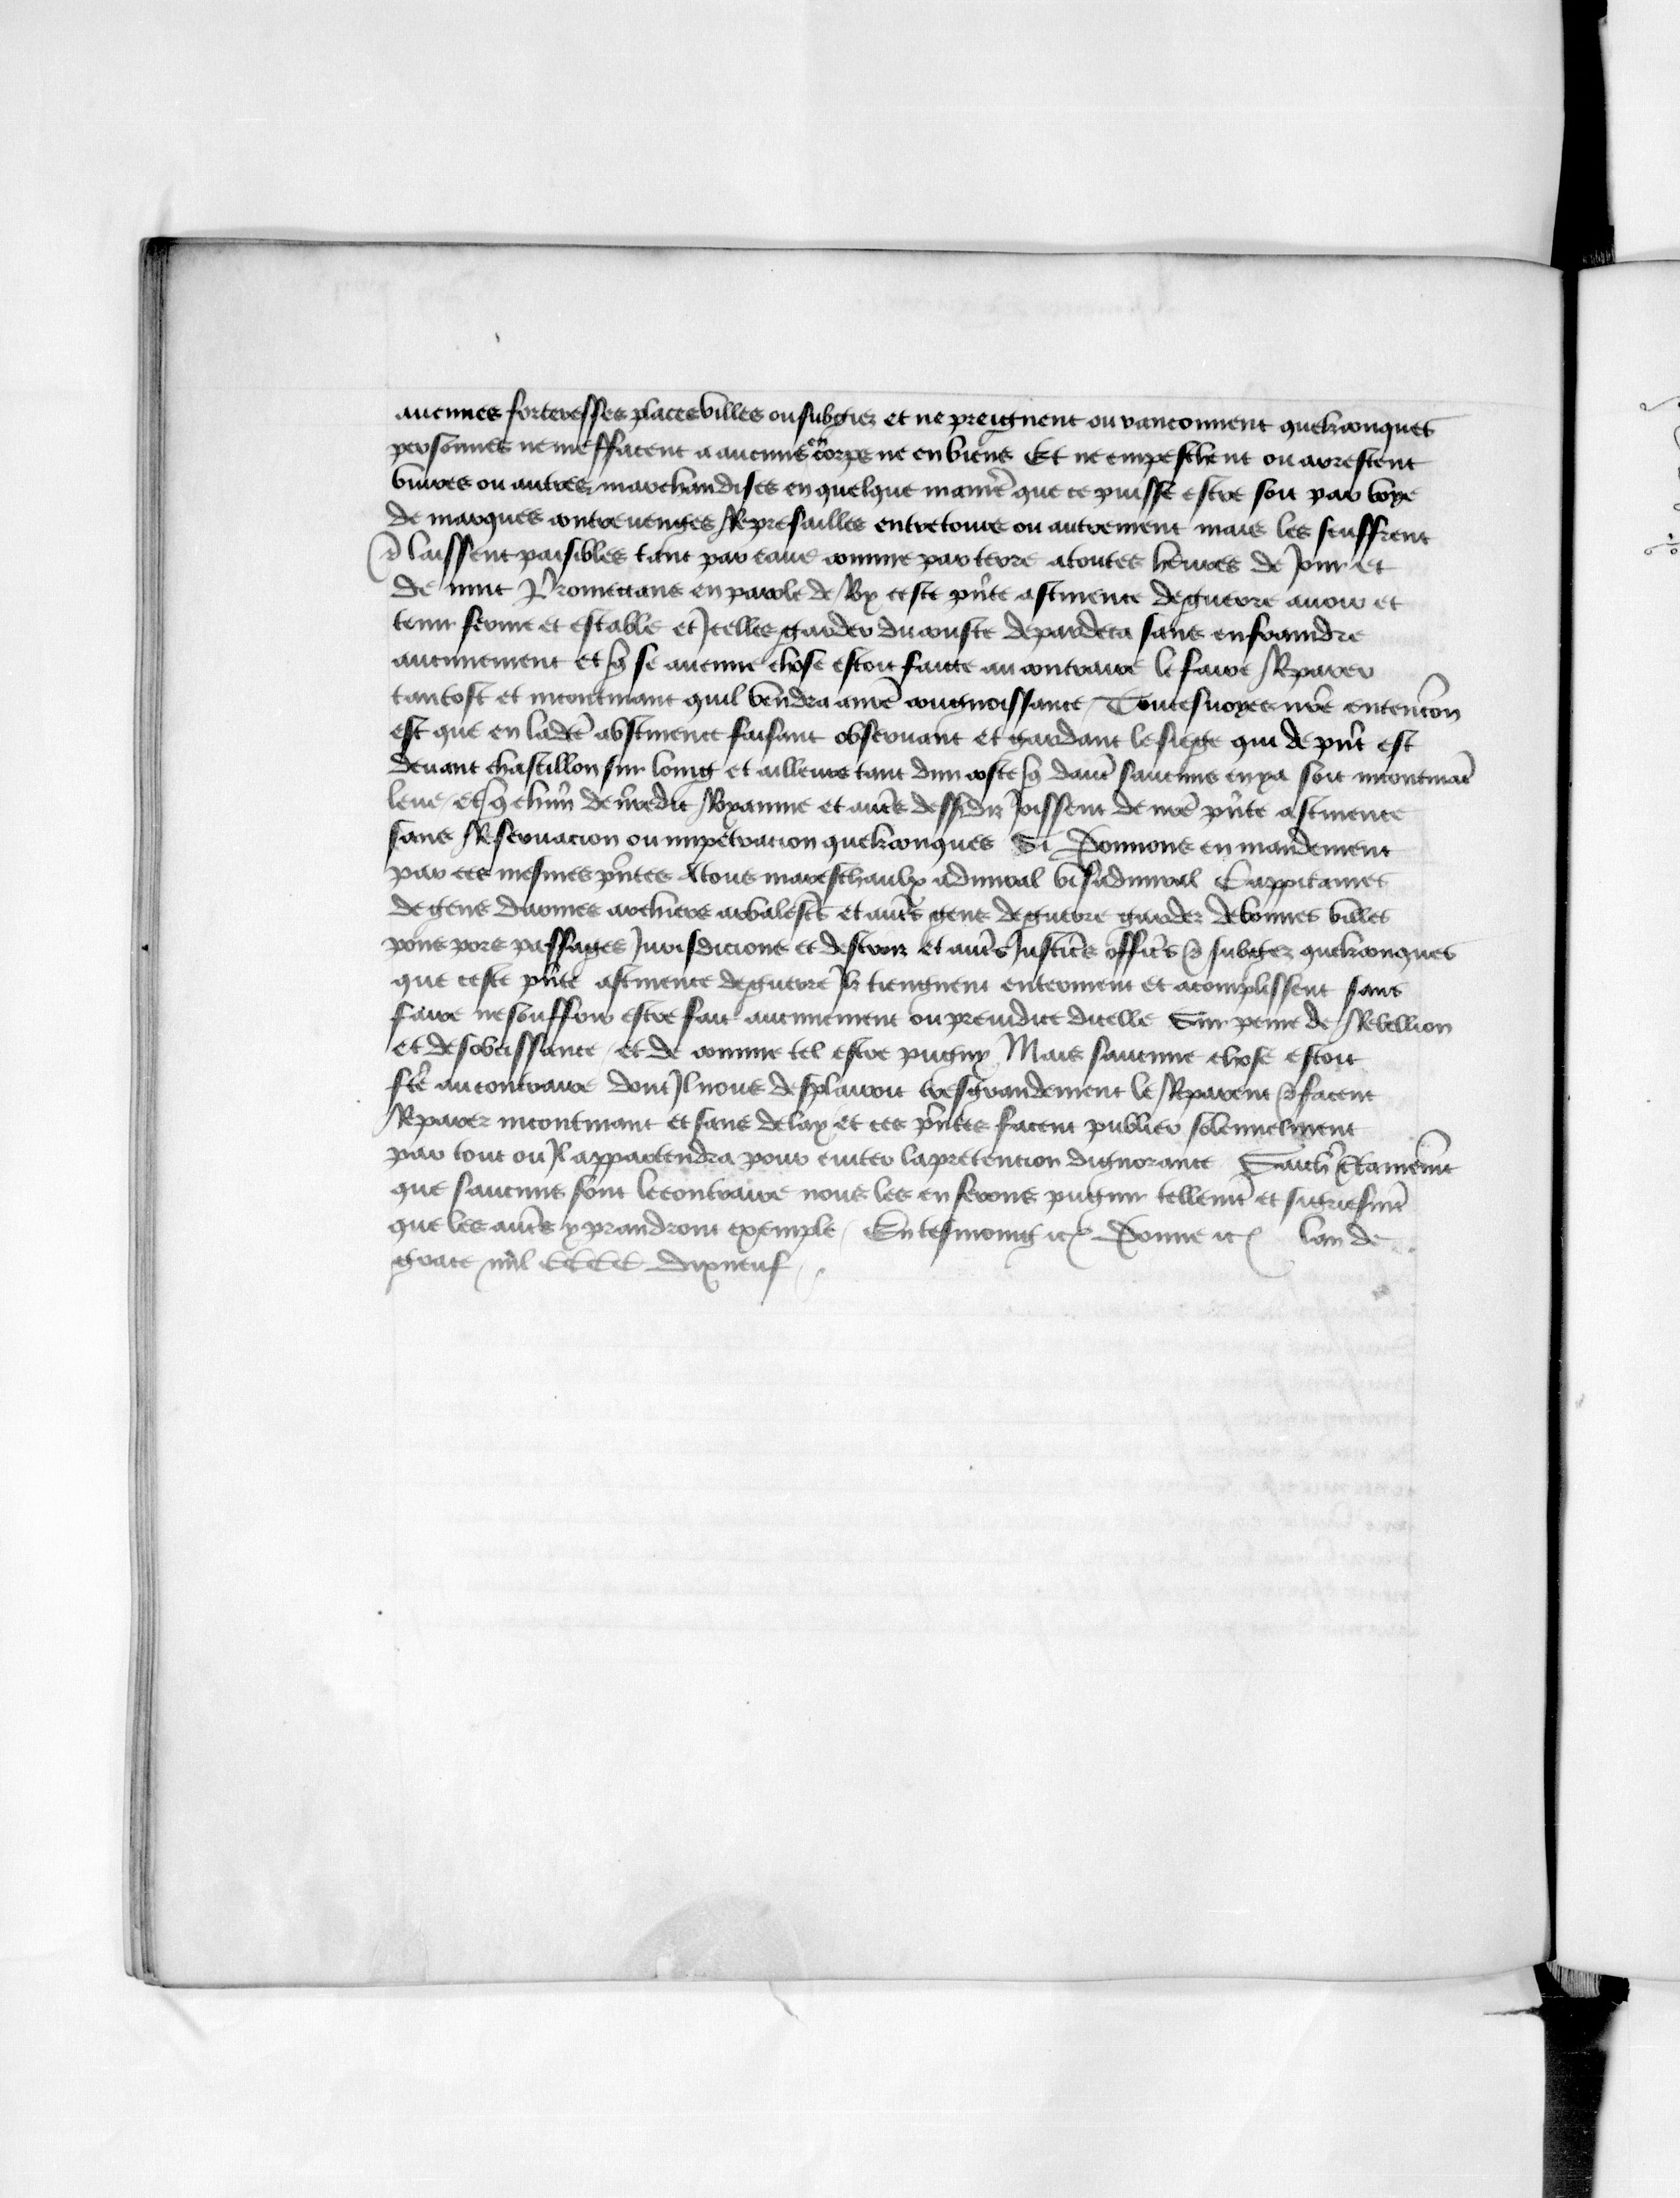 aucunes forteresses places villes ou subgiez et ne preignent ou ranconnent quelconques
personnes ne meffacent a aucuns en corps ne en biens Et ne empeschent ou arrestent
vivres ou autres marchandises en quelque manie͂ que ce puisse estre soit par voye
de marques contrevenges Represailles entrecours ou autrement mais les seuffrent
& laissent paisibles tant par eaue comme par terre a toutes heures de Jour et
de nuit Promectans en parole de Roy ceste pn͂te astinence de guerre avoir et
tenir ferme et estable et Jcelles garder du couste de par deca sans enfraindre
aucunement et q͂ se aucune chose estoit faicte au contraire le faire Reparer
tantost et incontinant quil vendra a nr͂e congnoissance / Toutesvoyes nr͂e entenc͂on
est que en ladc͂e abstinence faisant observant et gardant le siege qui de pn͂t est
devant chastillon sur loing et ailleurs tant dun coste q͂ daut͂ saucuns en ya soit incontinat͂
leve / et q͂ chu͂n de nr͂edit Royaume et aut͂s dessusdiz Joissent de nr͂e pn͂te astinence
sans Reservacion ou impetracion quelconques Si Donnons en mandement
par ces mesmes pn͂tes A tous mareschaulx admiral visadmiral Cappitaines
de gens darmes archiers arbalest͂s et aut͂s gens de guerre gardes de bonnes villes
pons pors passages Jurisdicions et destroiz et aut͂s Justic͂s offic͂s & subgez quelconques
que ceste pn͂te astinence de guerre Jlz tiengnent enterinent et acomplissent sans
faire ne souffrir estre fait aucunement ou preiudice dicelle Sur peine de Rebellion
et desobeissance / et de comme tel estre pugny Mais saucune chose estoit
fc͂e au contraire dont Jl nous desplairoit tresgrandement le Reparent & facent
Reparer incontinant et sans delay / et ces pn͂tes facent publier solennelment
par tout ou Jl appartendra pour eviter la pretention dignorance Saich͂
que saucuns font le contraire nous les en ferons pugnir tellemt͂ et si griefmt͂
que les aut͂s y prandront exemple / En tesmoing etc Donne etc lan de
grace mil CCCC dixneuf /.